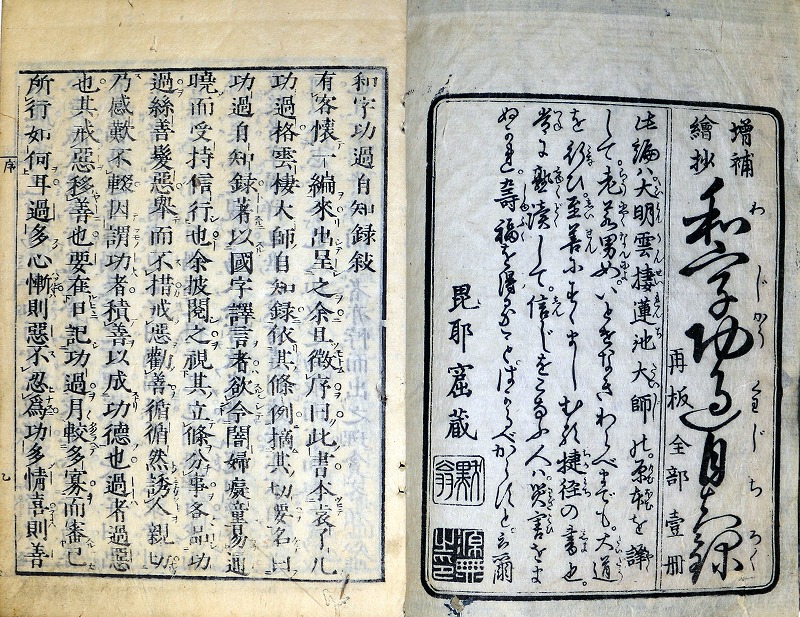 増補
繪抄
和字功過自知録
わじこうくわじちろく
再板全部壹冊
此編ハ大明雲棲蓮池大師の原本を譯
して老若男女いとをさなきわらべまでも大道
を行ひ至善にすましむる捷径の書也
常に熟讀して信じをこなふ人ハ災害をま
ぬかれ壽福を得ること
毘耶窟蔵
和字功過自知録敍
有客懷一編來出呈之余且徴序曰此書本袁了凡
功過格雲棲大師自知録依其條例摘其切要名曰
功過自知録著以國字譯言者欲令闇婦癡童易通
曉而受持信行也余披閲之視其立條分事各品功
過絲善髮惡舉而不措戒惡勸善循循然誘人親切
乃感歎不輟因謂功者積善以成功德也過者過惡
也其戒惡移善也要在日記功過月較多寡而審己
所行如何耳過多心慚則惡不忍爲功多情喜則善
序